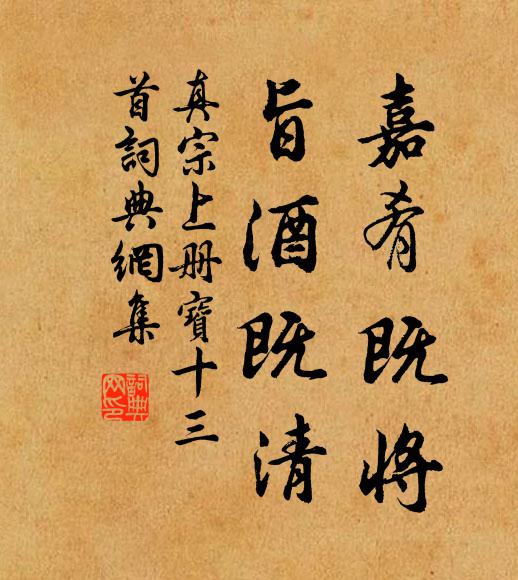 嘉肴既将
旨酒既清
真宗上册寳十三
首詞典網集
詞典
网印